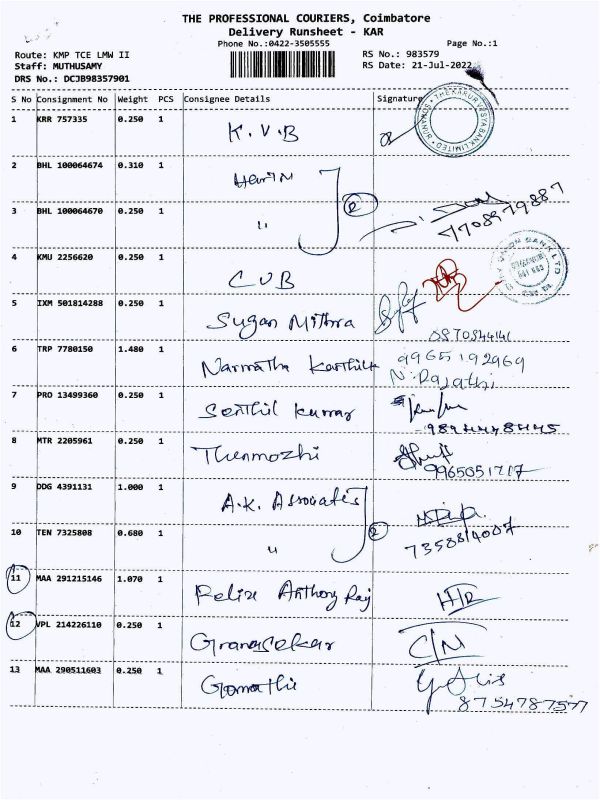 THE PROFESSIONAL COURIERS, Coimbatore
Delivery Runsheet - KAR
Phone No.:0422-3505555 Page No.:1
Route: KMP TCE LMW II RS No.: 983579
Staff: MUTHUSAMY RS Date: 21-Jul-2022
DRS No.: DCJB98357901
S No Consignment No Weight PCS Consignee Details Signature
1 KRR 757335 0.250 1 K.V.B
2 BHL 100064674 0.310 1 Hari N
3 BHL 100064670 0.250 1 " 2 7708979887
4 KMU 2256620 0.250 1 CUB
5 IXM 501814288 0.250 1 Sugan Mithra
6 TRP 7780150 1.480 1 Narmatha Karthik 9965192969
N. Rajathi
7 PRO 13499360 0.250 1 Senthil Kumar
8 MTR 2205961 0.250 1 Thenmozhi
9965051717
9 DDG 4391131 1.000 1 A.K. Associates
10 TEN 7325808 0.680 1 " 2 7358814007
11 MAA 291215146 1.070 1 Felix Anthony Raj H/R
12 VPL 214226110 0.250 1 Gnanasekar C/N
13 MAA 290511603 0.250 1 Gomathi
8754787577